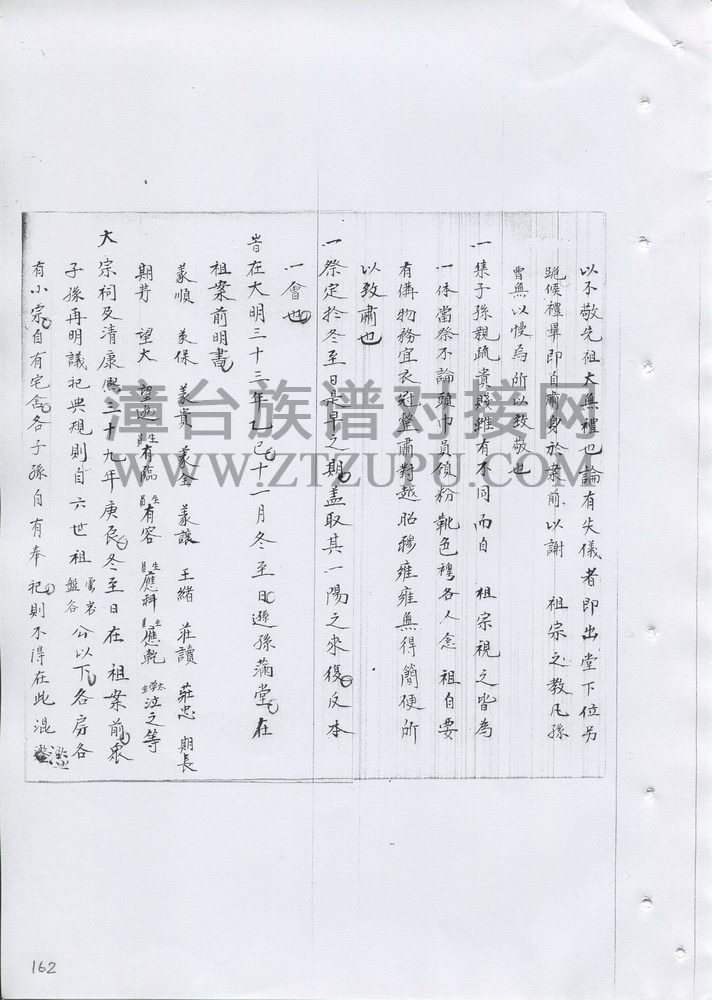 以不敬先祖大無禮也論有失儀者即出堂下位另
跪候禮畢即自肅身於案前以謝 祖宗之教凡孫
曹無以慢焉所以致敬也
一集子孫親疏貴賤雖有不同而自 祖宗視之皆為
一体當祭不論頭巾員領粉靴色𧝁各人念 祖自要
有備物務宜衣冠整肅對越昭穆雍雍無得簡便所
以致肅也
一祭定於冬至日是早之期蓋取其一陽之來復反本
一會也
旹在大明三十三年乙巳十一月冬至日遜孫蒲堂在
祖案前明書
義順 義保 義貴 義全 義讓 王緒 莊讀 莊忠 期長
期芳 望大 望遊 有臨 有容 應科 應乾 泣之等
大宗祠及清康熙三十九年庚辰冬至日在 祖案前眾
子孫再明議祀典規則自六世祖 雲岩 盤谷 公以下各房各
有小宗自有宅舍各子孫自有奉 祀則不得在此混濫
漳台族谱对接网
WWW.ZTZUPU.COM
162